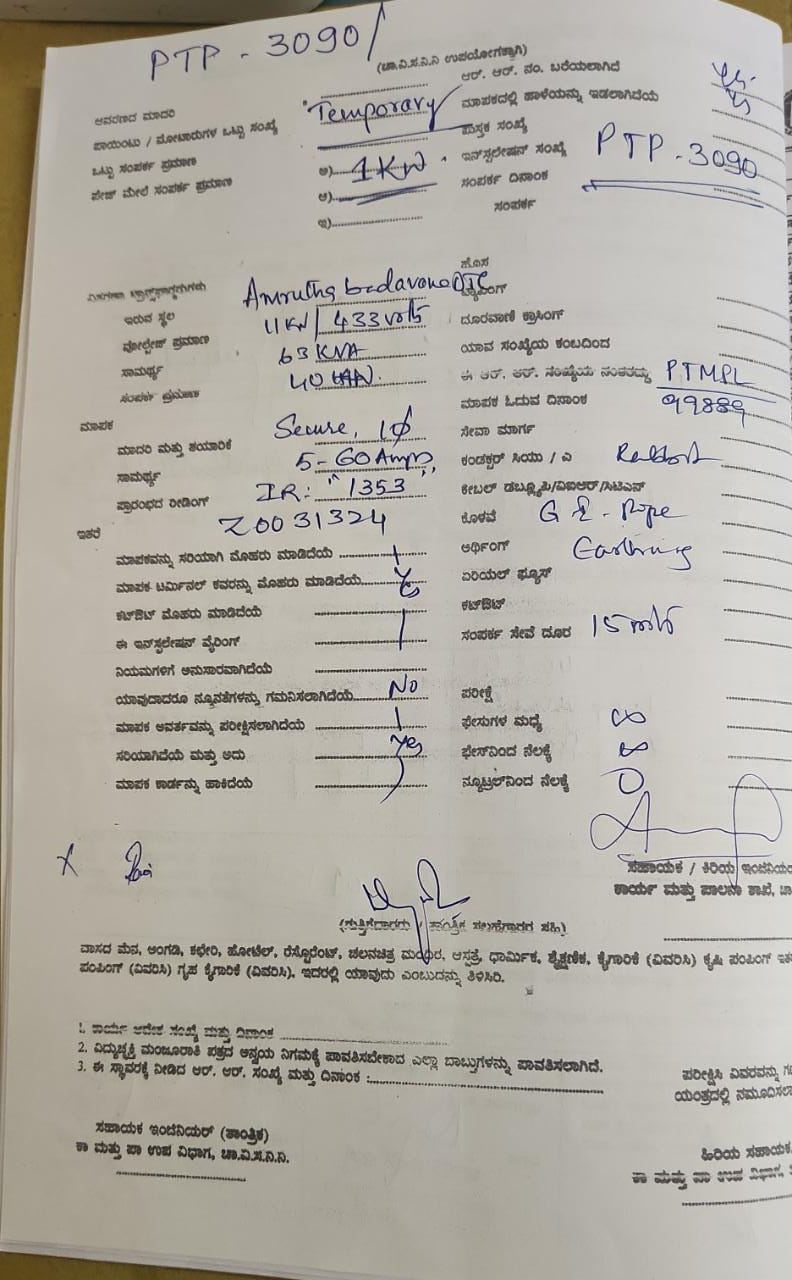 PTP - 3090/
(ಚಾ.ವಿ.ಸ.ನಿ.ನಿ ಉಪಯೋಗಕ್ಕಾಗಿ)
ಆವರಣದ ಮಾದರಿ
ಪಾಯಿಂಟು / ಮೋಟಾರುಗಳ ಒಟ್ಟು ಸಂಖ್ಯೆ Temporary
ಒಟ್ಟು ಸಂಪರ್ಕ ಪ್ರಮಾಣ ಅ) 1KW
ಪೇಜ್ ಮೇಲೆ ಸಂಪರ್ಕ ಪ್ರಮಾಣ ಆ)
ಇ)
ಆರ್. ಆರ್. ನಂ. ಬರೆಯಲಾಗಿದೆ yes
ಮಾಪಕದಲ್ಲಿ ಹಾಳೆಯನ್ನು ಇಡಲಾಗಿದೆಯೆ
ಪುಸ್ತಕ ಸಂಖ್ಯೆ
ಇನ್‌ಸ್ಟಲೇಷನ್ ಸಂಖ್ಯೆ PTP - 3090
ಸಂಪರ್ಕ ದಿನಾಂಕ
ಸಂಪರ್ಕ
Amrutha badavane DTC
ಇರುವ ಸ್ಥಳ
ವೋಲ್ಟೇಜ್ ಪ್ರಮಾಣ 11KV/433 volts
ಸಾಮರ್ಥ್ಯ 63 KVA
ಸಂಪರ್ಕ ಪ್ರಮಾಣ 40
ಮಾಪಕ
ಮಾದರಿ ಮತ್ತು ತಯಾರಿಕೆ Secure, 1ϕ
ಸಾಮರ್ಥ್ಯ 5-60 Amps
ಪ್ರಾರಂಭದ ರೀಡಿಂಗ್ IR: "1353"
ಇತರೆ Z0031324
ಮಾಪಕವನ್ನು ಸರಿಯಾಗಿ ಮೊಹರು ಮಾಡಿದೆಯೆ
ಮಾಪಕ ಟರ್ಮಿನಲ್ ಕವರನ್ನು ಮೊಹರು ಮಾಡಿದೆಯೆ
ಕಟ್‌ಔಟ್ ಮೊಹರು ಮಾಡಿದೆಯೆ
ಈ ಇನ್‌ಸ್ಟಲೇಷನ್ ವೈರಿಂಗ್
ನಿಯಮಗಳಿಗೆ ಅನುಸಾರವಾಗಿದೆಯೆ
ಯಾವುದಾದರೂ ನ್ಯೂನತೆಗಳನ್ನು ಗಮನಿಸಲಾಗಿದೆಯೆ No
ಮಾಪಕ ಆವರ್ತವನ್ನು ಪರೀಕ್ಷಿಸಲಾಗಿದೆಯೆ
ಸರಿಯಾಗಿದೆಯೆ ಮತ್ತು ಅದು Yes
ಮಾಪಕ ಕಾರ್ಡನ್ನು ಹಾಕಿದೆಯೆ
ಹೊಸ
ದೂರವಾಣಿ ಕ್ರಾಸಿಂಗ್
ಯಾವ ಸಂಖ್ಯೆಯ ಕಂಬದಿಂದ
ಈ ಆರ್. ಆರ್. ಸಂಖ್ಯೆಯ ನಂತರದ್ದು PTMPL
ಮಾಪಕ ಓದುವ ದಿನಾಂಕ 99889
ಸೇವಾ ಮಾರ್ಗ
ಕಂಡಕ್ಟರ್ ಸಿಯು / ಎ
ಕೇಬಲ್ ಡಬ್ಲ್ಯೂಪಿ/ವಿಐಆರ್/ಸಿಟಿಎಸ್
ಕೊಳವೆ
ಅರ್ಥಿಂಗ್ Earthing
ಏರಿಯಲ್ ಫ್ಯೂಸ್
ಕಟ್‌ಔಟ್
ಸಂಪರ್ಕ ಸೇವೆ ದೂರ 15 mtr
ಪರೀಕ್ಷೆ
ಫೇಸುಗಳ ಮಧ್ಯೆ ∞
ಫೇಸ್‌ನಿಂದ ನೆಲಕ್ಕೆ ∞
ನ್ಯೂಟ್ರಲ್‌ನಿಂದ ನೆಲಕ್ಕೆ 0
ಸಹಾಯಕ / ಕಿರಿಯ ಇಂಜಿನಿಯರ್
ಕಾರ್ಯ ಮತ್ತು ಪಾಲನಾ ಶಾಖೆ,
(ಗುತ್ತಿಗೆದಾರರು / ತಾಂತ್ರಿಕ ಸಲಹೆಗಾರರ ಸಹಿ)
ವಾಸದ ಮನೆ, ಅಂಗಡಿ, ಕಛೇರಿ, ಹೋಟೆಲ್, ರೆಸ್ಟೋರೆಂಟ್, ಚಲನಚಿತ್ರ ಮಂದಿರ, ಆಸ್ಪತ್ರೆ, ಧಾರ್ಮಿಕ, ಶೈಕ್ಷಣಿಕ, ಕೈಗಾರಿಕೆ (ವಿವರಿಸಿ) ಕೃಷಿ ಪಂಪಿಂಗ್
ಪಂಪಿಂಗ್ (ವಿವರಿಸಿ) ಗೃಹ ಕೈಗಾರಿಕೆ (ವಿವರಿಸಿ), ಇದರಲ್ಲಿ ಯಾವುದು ಎಂಬುದನ್ನು ತಿಳಿಸಿರಿ.
1. ಕಾರ್ಯ ಆದೇಶ ಸಂಖ್ಯೆ ಮತ್ತು ದಿನಾಂಕ
2. ವಿದ್ಯುಚ್ಛಕ್ತಿ ಮಂಜೂರಾತಿ ಪತ್ರದ ಅನ್ವಯ ನಿಗಮಕ್ಕೆ ಪಾವತಿಸಬೇಕಾದ ಎಲ್ಲಾ ಬಾಬ್ತುಗಳನ್ನು ಪಾವತಿಸಲಾಗಿದೆ.
3. ಈ ಸ್ಥಾವರಕ್ಕೆ ನೀಡಿದ ಆರ್. ಆರ್. ಸಂಖ್ಯೆ ಮತ್ತು ದಿನಾಂಕ :
ಪರೀಕ್ಷಿಸಿ ವಿವರವನ್ನು
ಯಂತ್ರದಲ್ಲಿ
ಸಹಾಯಕ ಇಂಜಿನಿಯರ್ (ತಾಂತ್ರಿಕ)
ಕಾ ಮತ್ತು ಪಾ ಉಪ ವಿಭಾಗ, ಚಾ.ವಿ.ಸ.ನಿ.ನಿ.
ಹಿರಿಯ ಸಹಾಯಕ
ಕಾ ಮತ್ತು ಪಾ ಉಪ ವಿಭಾಗ,